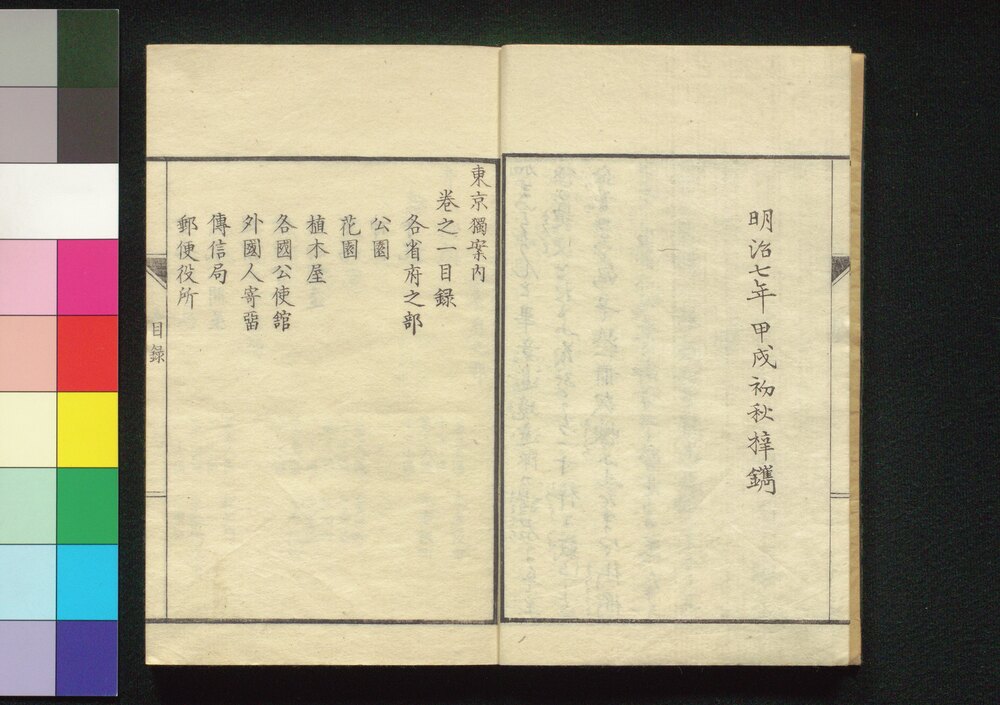 明治七年甲戌初秋梓鐫
東京獨案内
巻之一目録
各省府之部
公園
花園
植木屋
各國公使舘
外國人寄畱
傳信局
郵便役所
目録